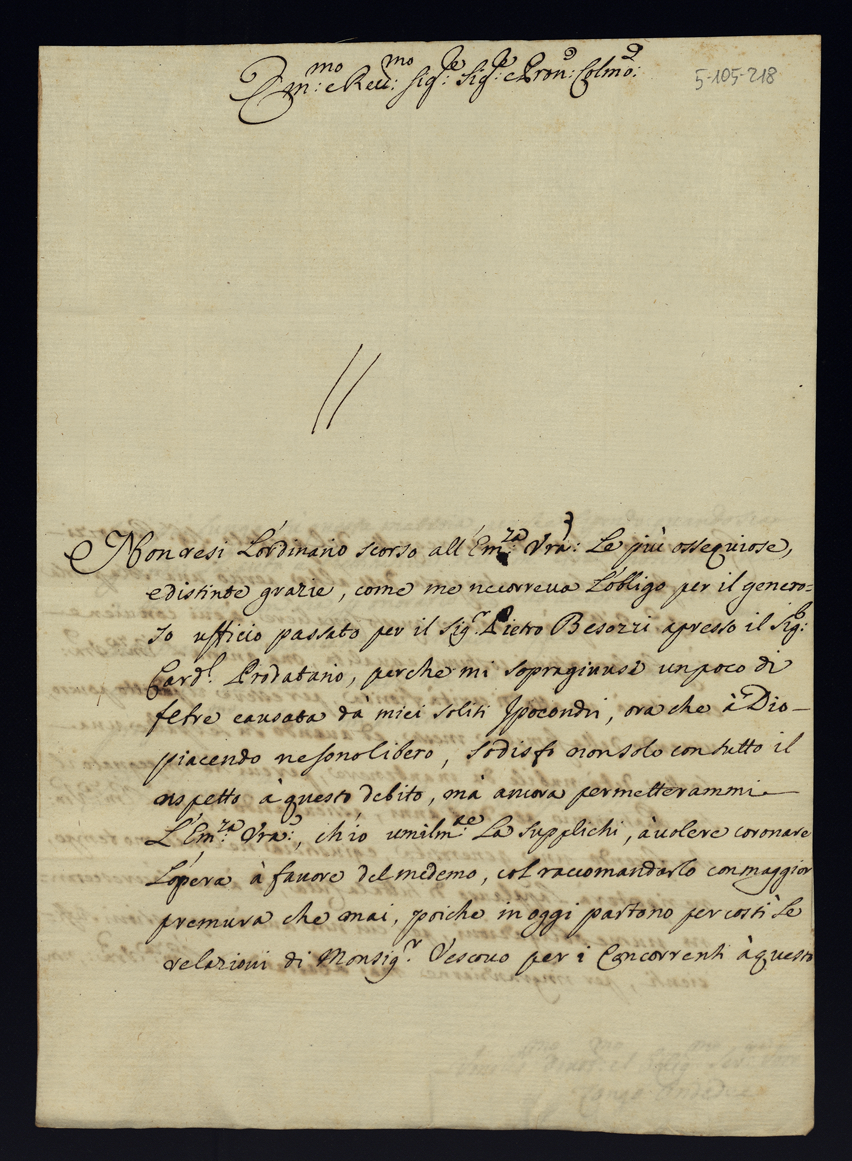 Em:mo e Reu:mo Sig:re Sig:re e Pron:e Colmo:
5-105-218
Non resi L'ordinario scorso all'Em:za Vrã: Le più ossequiose,
e distinte grazie, come me ne correua L'obligo per il genero=
so ufficio passato per il Sig:r Pietro Besozzi apresso il Sig:
Card:l Prodatario, perche mi sopragiunse un poco di
febre causata dà miei soliti Ipocondri, ora che à Dio
piacendo ne sono libero, sodisfo non solo con tutto il
rispetto à questo debito, mà ancora permetterammi
L'Em:za Vrã:, ch'io umilm:te La supplichi, à uolere coronare
L'opera à fauore del medemo, col raccomandarlo con maggior
premura che mai, poiche in oggi partono per costì le
relazioni di Monsig:r Vescouo per i Concorrenti à questo